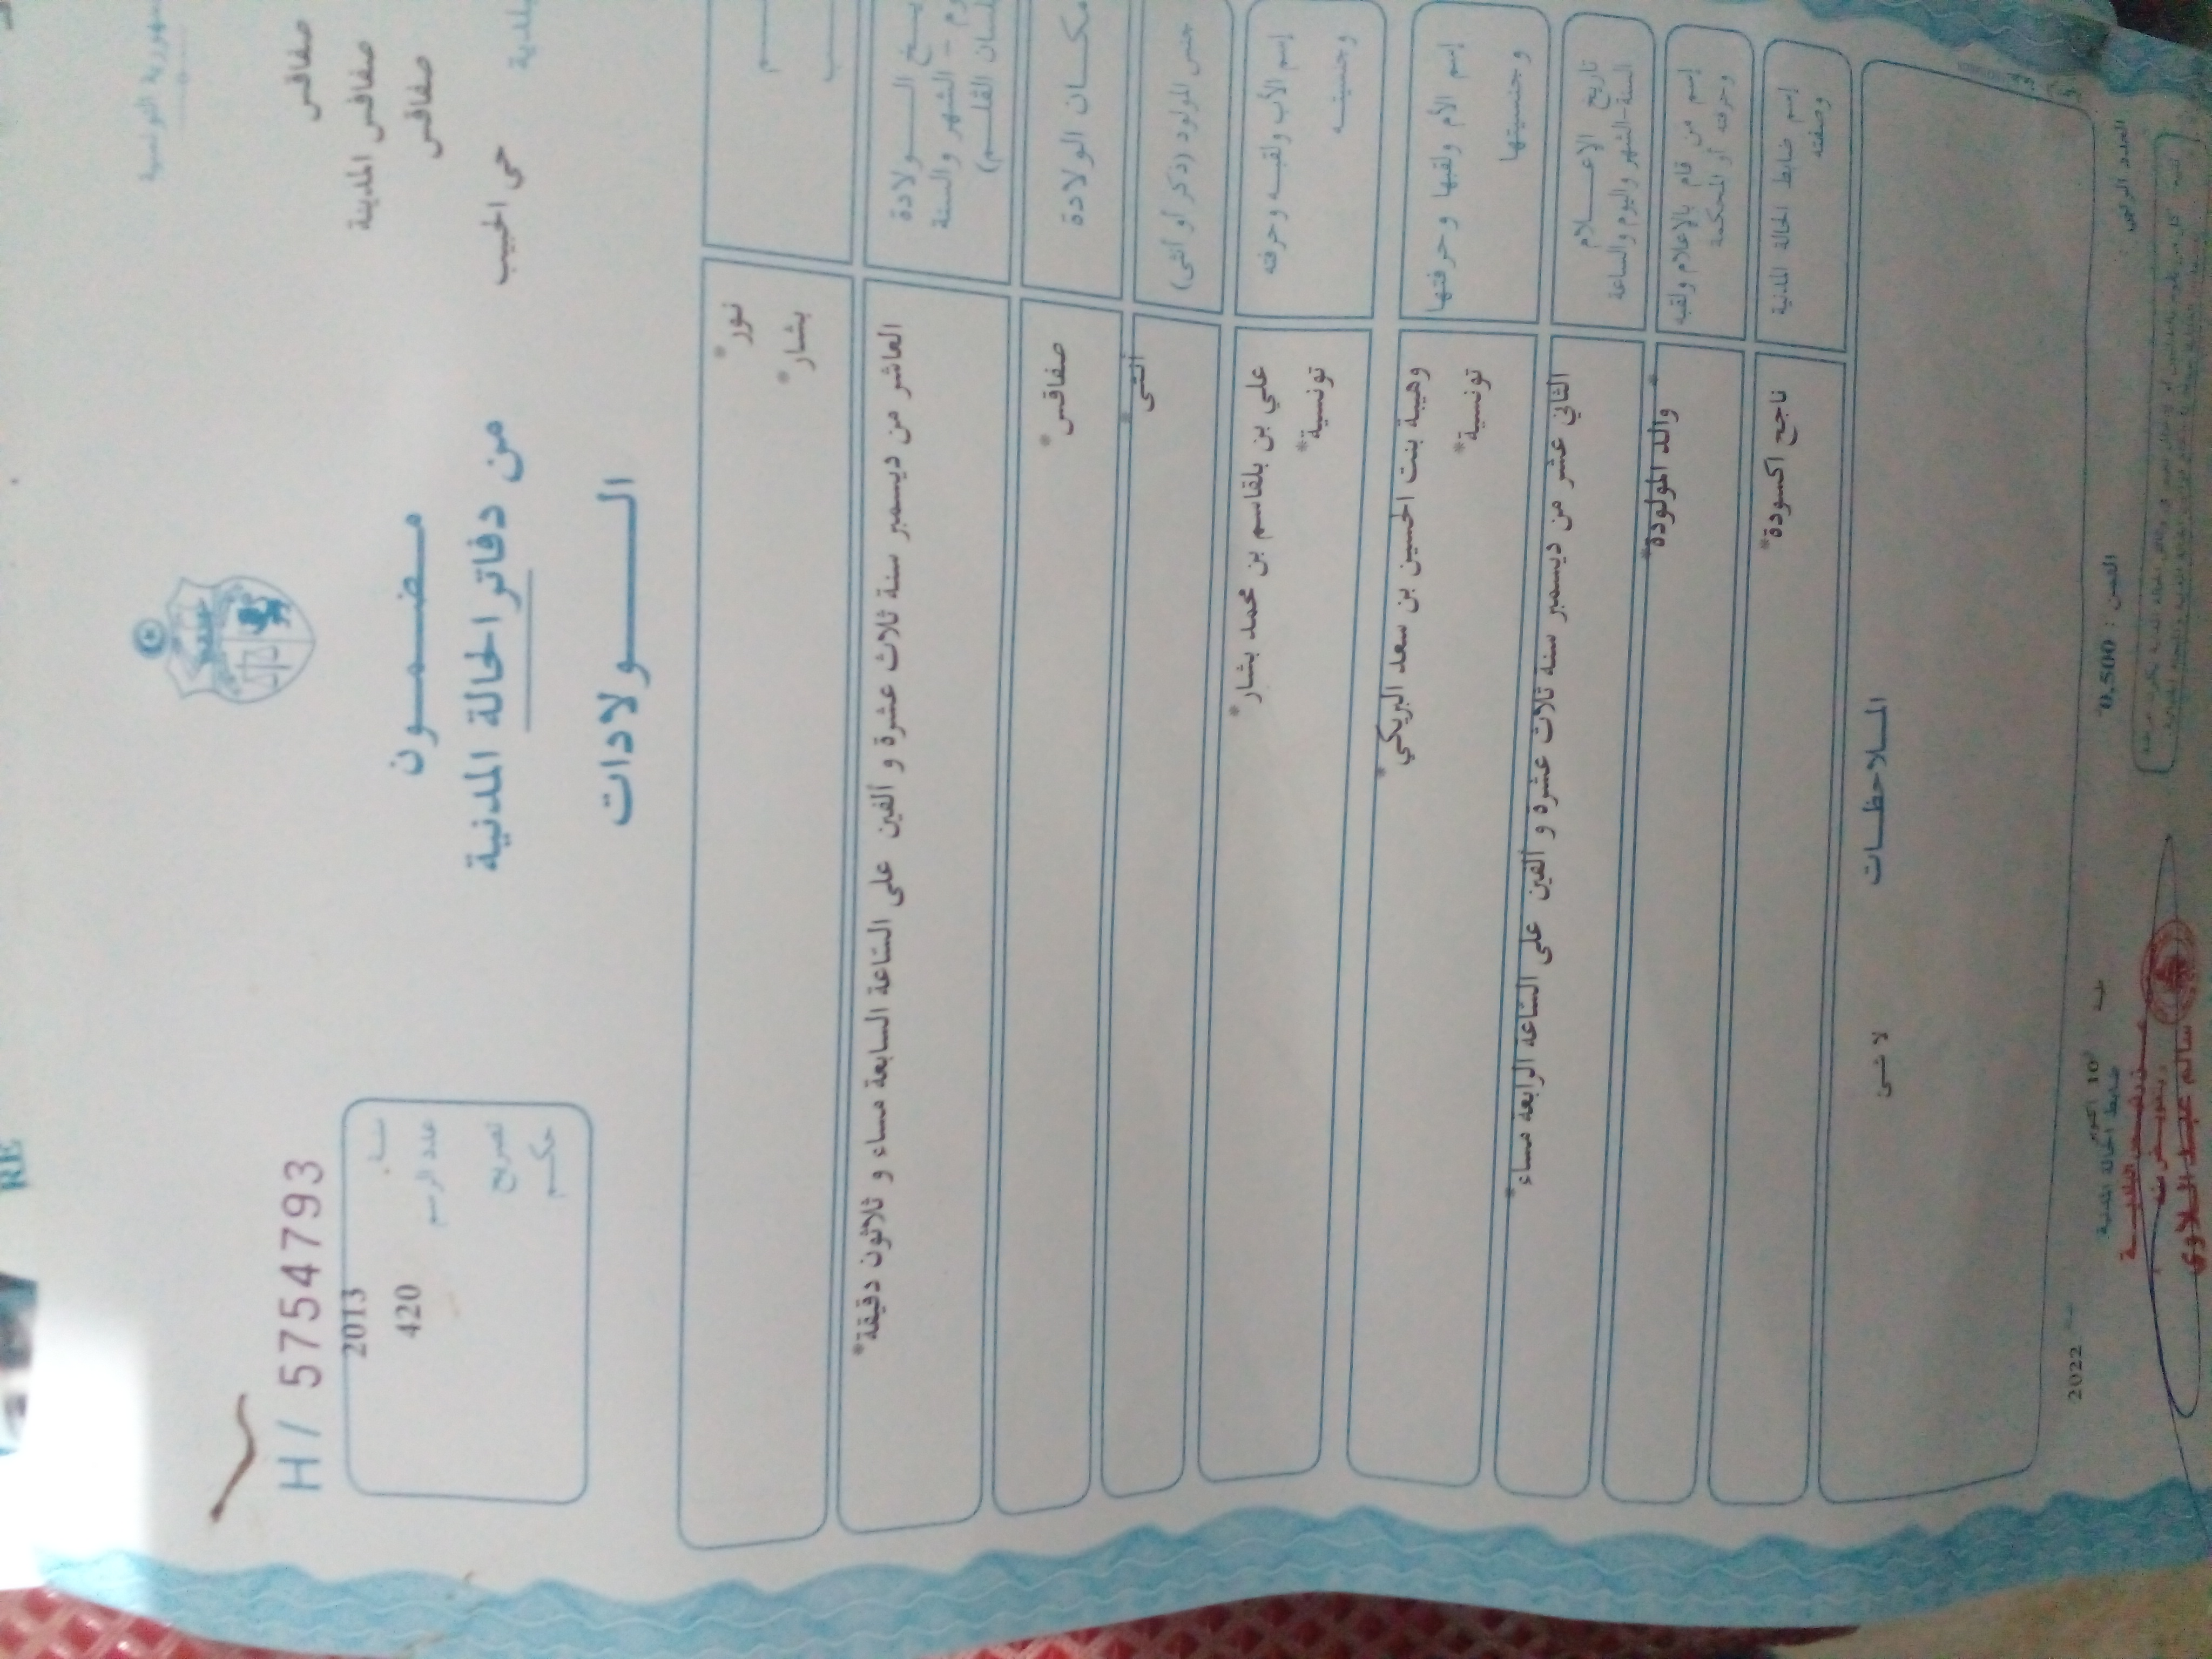 RE
صفاقس
صفاقس المدينة
صفاقس
حي الحبيب
H/ 5754793
2013
عدد الرسم 420
تصريح
حكم
مضمون
من دفاتر الحالة المدنية
الولادات
نور*
بشار*
الولادة
الشهر والسنة
العاشر من ديسمبر سنة ثلاث عشرة و ألفين على الساعة السابعة مساء و ثلاثون دقيقة*
مكان الولادة
صفاقس*
جنس المولود (ذكر أو أنثى)
أنثى*
إسم الأب ولقبه وحرفته
وجنسيته
علي بن بلقاسم بن محمد بشار*
تونسية*
إسم الأم ولقبها وحرفتها
وجنسيتها
وهيبة بنت الحسين بن سعد البريكي*
تونسية*
تاريخ الإعلام
السنة-الشهر واليوم والساعة
الثاني عشر من ديسمبر سنة ثلاث عشرة و ألفين على الساعة الرابعة مساء*
إسم من قام بالإعلام ولقبه
وحرفته أو المحكمة
والد المولودة*
إسم ضابط الحالة المدنية
وصفته
ناجح اكسودة*
الملاحظات
لا شيئ
العدد الرتبي :
الثمن : 0,500
10 أكتوبر 2022
ضابط الحالة المدنية